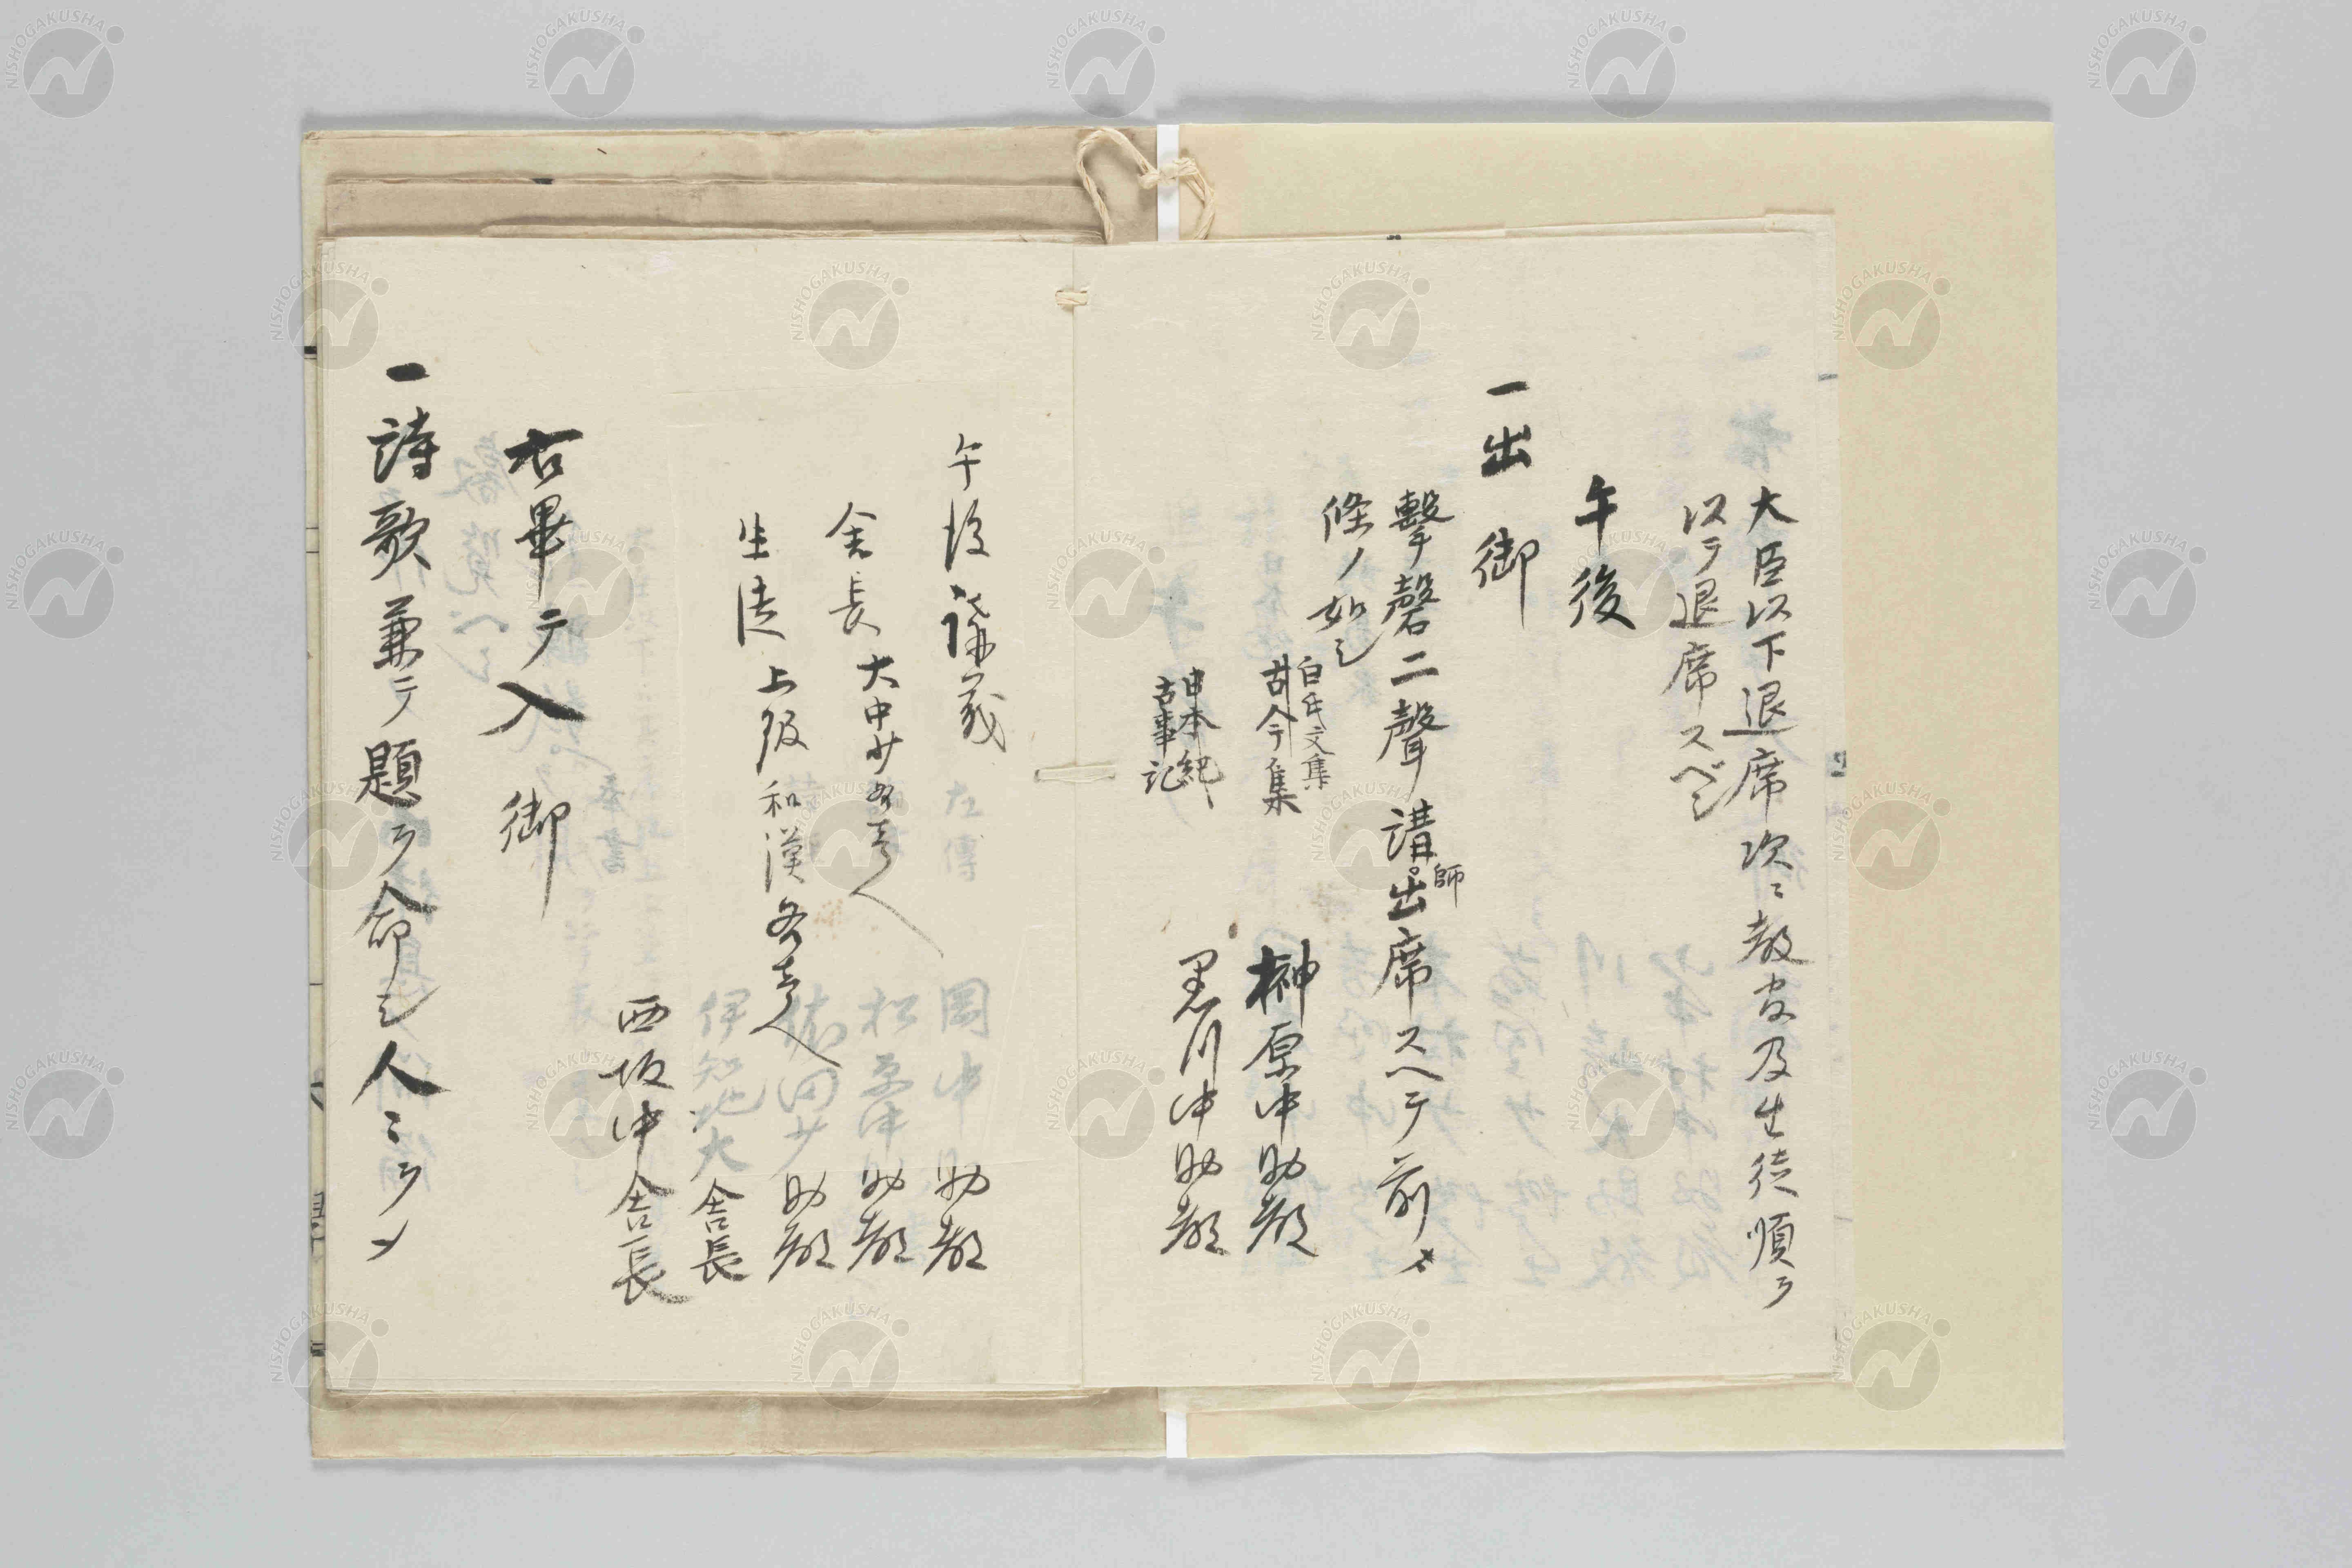 大臣以下退席次ニ教官及生徒順ヲ
以テ退席スベシ
午後
一出御
撃磬二聲講師出席スヘテ前
條ノ如シ
白氏文集
古今集 榊原中助教
日本紀
古事記 黒川中助教
午後講義 左傳 岡中助教
舍長大中少各壱人 松
生徒上級和漢各壱人 田少助教
伊知地大舍長
西坂中舍長
右畢テ入御
一詩歌兼テ題ヲ命シ人ニヲメ
NISHOGAKUSHA